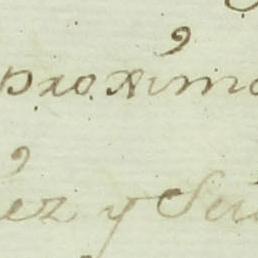 proximo
ez y Su